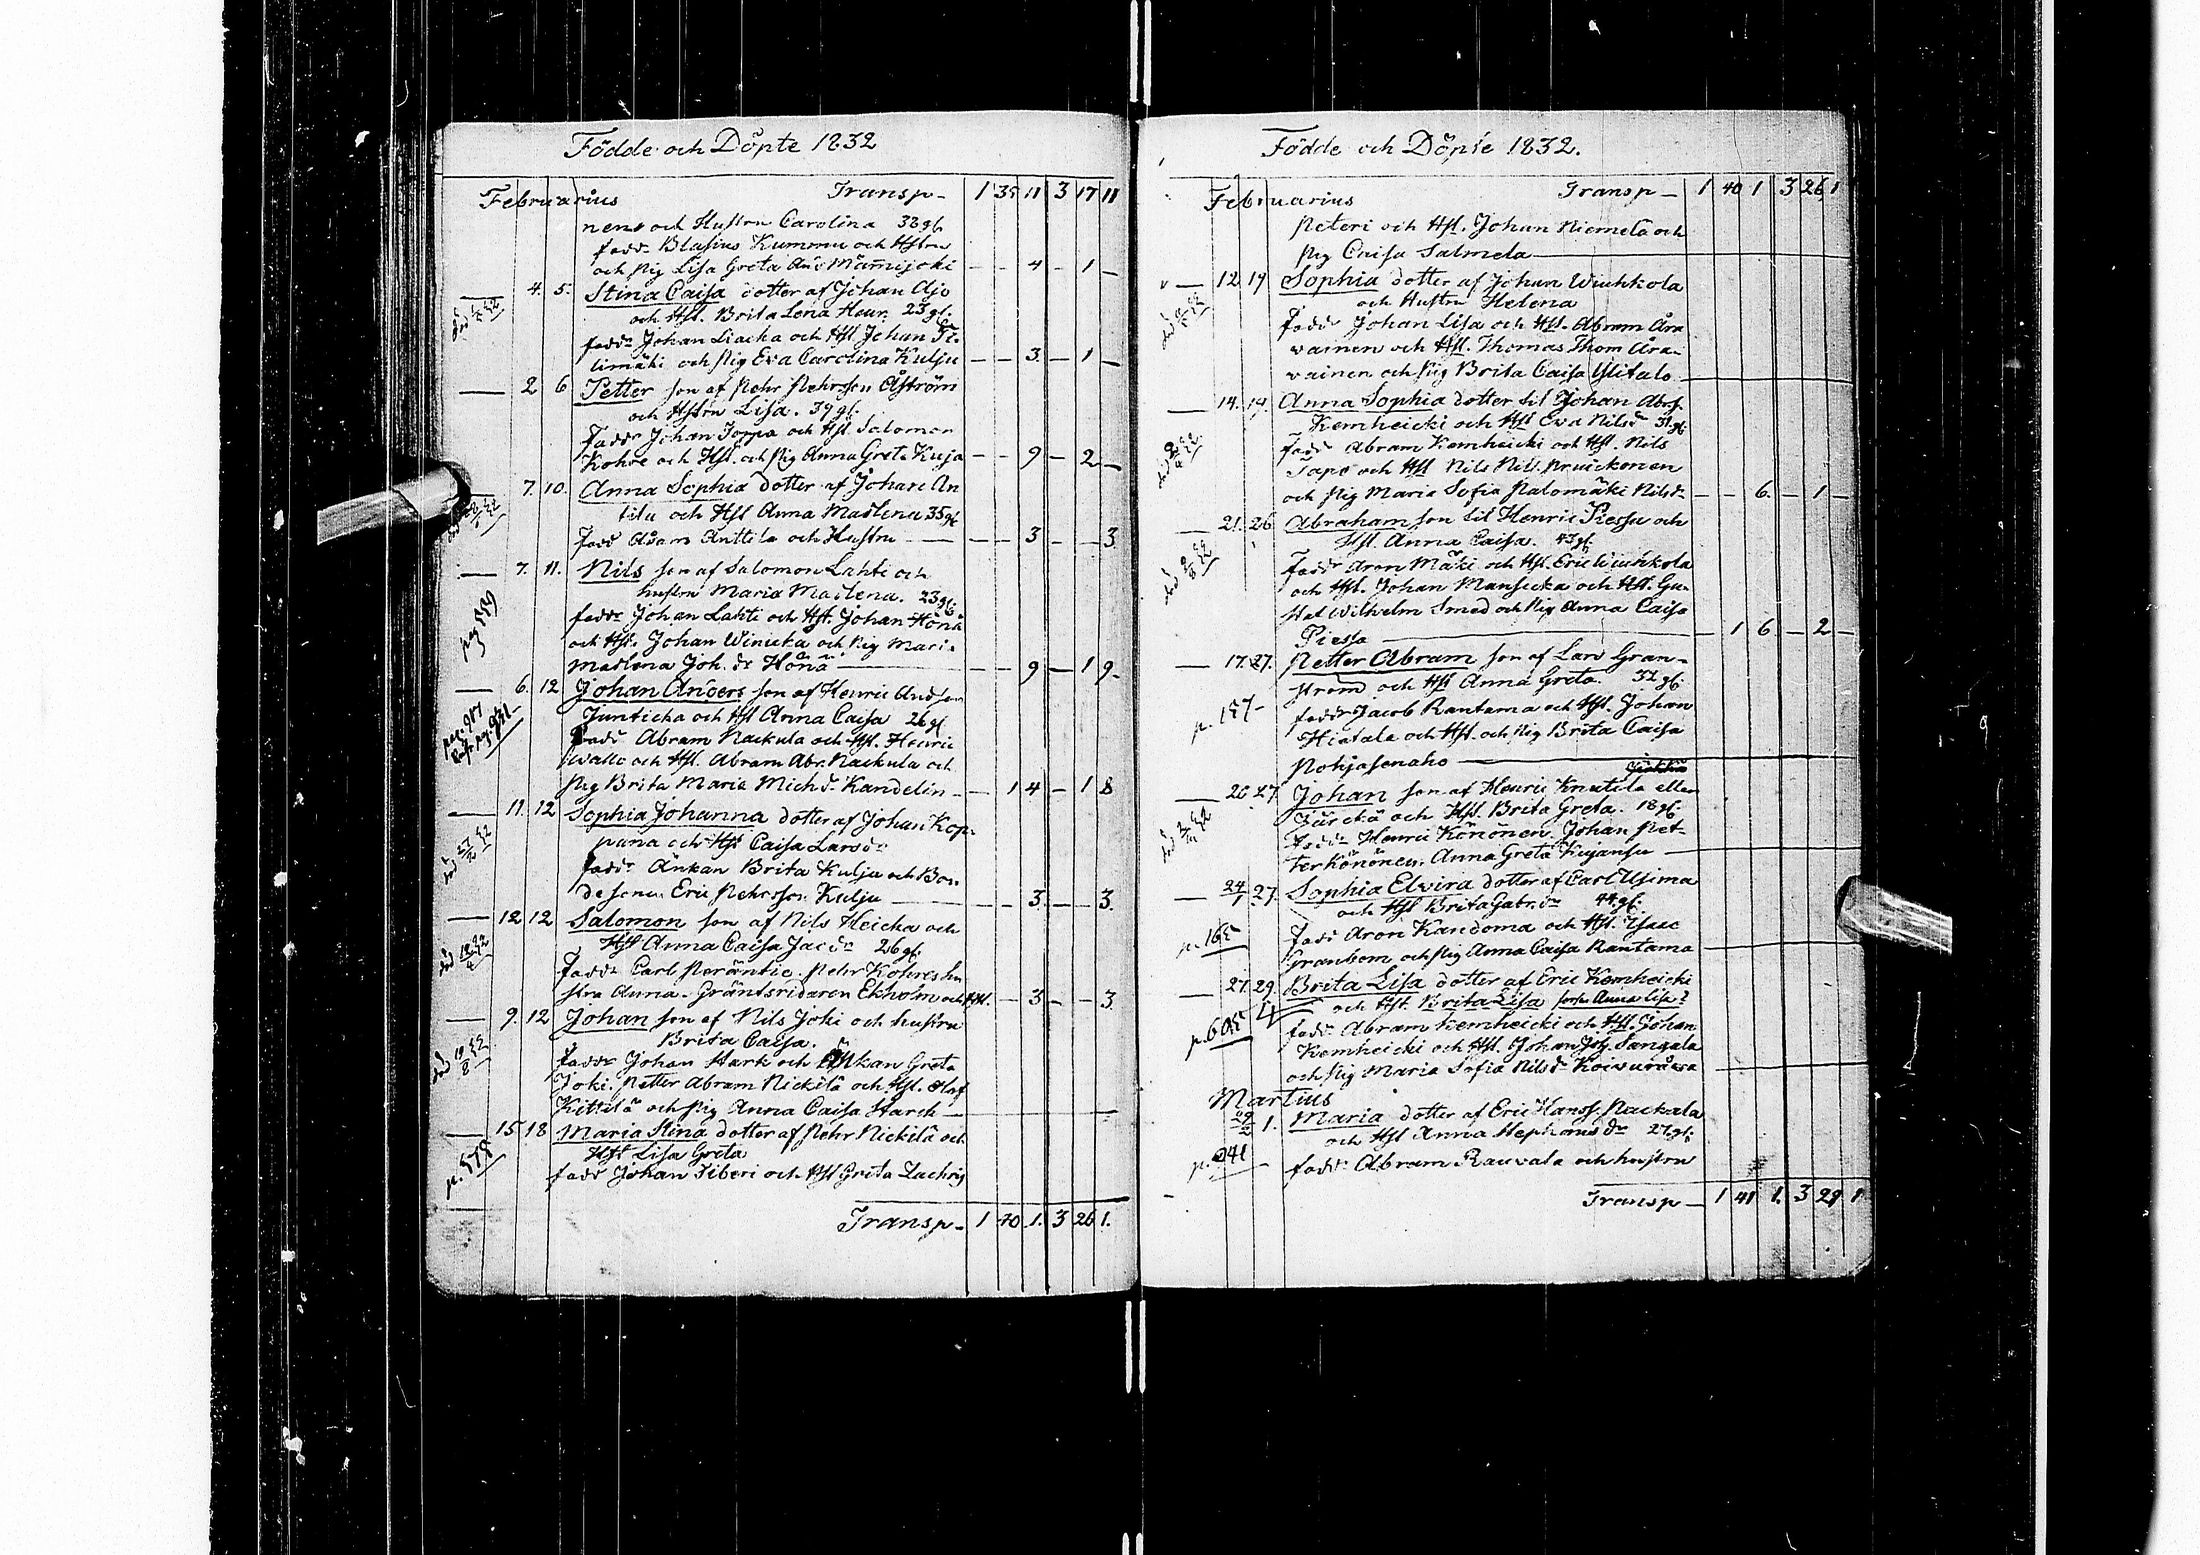 Födde och Döpte 1832
Februarius Transp- 1 35 11 3 17 11
nens och Hustru Carolina 38 gl.
fadd. Blasius Kummu och Hstru
och Pig Lisa Greta And. Mämijoki — — 4 — 1 —
4. 5. Stina Caisa dotter af Johan Ajo
och Hst. Brita Lena Henr. 23 gl.
fadd. Johan Liacka och Hst. Johan Ti-
limäki och Pig Eva Carolina Kulju — — 3 — 1 —
2 6 Petter son af Pehr Pehrsson Åström
och Hstru Lisa. 39 gl.
Fadd. Johan Joppa och Hst. Salomon
Kohre och Hst. och Pig Anna Greta Kuja — — 9 — 2 —
7. 10. Anna Sophia dotter af Johan An
tila och Hst Anna Madlena 35 gl
fadd Adam Anttila och Hustru — — 3 — — 3
7. 11. Nils son af Salomon Lahti och
hustru Maria Madlena. 23 gl.
pag 559
fadd. Johan Lahti och Hst. Johan Hönä
och Hst. Johan Winicka och Pig Mari-
madlena Joh. dr Hönä — — 9 — 1 9 -
6. 12 Johan Anders son af Henric Andson
Junticka och Hst Anna Caisa 26 gl.
fadd Abram Nackula och Hst. Henric
wallo och Hst. Abram Abr. Nackula och
Pig Brita Maria Mich dr Kandelin — 1 4 — 1 8
11. 12 Sophia Johanna dotter af Johan Kop-
pana och Hst Caisa Larsdr
fadd Änkan Brita Kulju och Bon-
desonen Eric Pehrsson Kulju — — 3 — — 3.
12 12 Salomon son af Nils Heicka och
Hst Anna Caisa Jac dr 26 gl.
död 18/4 32
Fadd. Carl Peräntie. Pehr Kohres hu
stru Anna. Gräntsridaren Ekholm och Hst. — 3 — — 3
9. 12 Johan son af Nils Joki och hustru
Brita Caisa.
död 19/8 32
Fadd. Johan Hark och Änkan Greta
Joki. Petter Abram Nickilä och Hst. Olof
Kittilä och Pig Anna Caisa Harch —
15 18 Maria Stina dotter af Pehr Nickilä och
Hst Lisa Greta
p. 578
fadd Johan Siberi och Hst Greta Zachris
Transp- 1 40 1. 3 26 1.
Födde och Döpte 1832.
Februarius Transp- 1 40 1 3 26 1
Peteri och Hst. Johan Niemelä och
Pig Caisa Salmela —
12 19 Sophia dotter af Johan Wiuhkola
och Hustru Helena
Fadd. Johan Lisa och Hst. Abram Ara
vainen och Hst. Thomas Thom Ara-
vainen och Pig Brita Caisa Ylitalo
14. 19. Anna Sophia dotter til Johan Abrs.
Kemheicki och Hst Eva Nilsdr 31 gl
fadd Abram Kemheicki och Hst. Nils
Tapo och Hst Nils Nils. Pruickonen
och Pig Maria Sofia Palomäki Nilsdr — — 6 — 1 —
21. 26 Abraham son til Henric Piessa och
Hst. Anna Caisa. 43 gl.
Fadd. Aron Mäki och Hst. Eric Wiuhkola
och Hst. Johan Mansicka och Hst. Gu-
staf Wilhelm Smed och Pig Anna Caisa
Piessa — 1 6 — 2 —
17. 27. Petter Abram son af Lars Gran-
ström och Hst Anna Greta. 32 gl.
p. 157-
fadd. Jacob Rantama och Hst. Johan
Hiatala och Hst. och Pig Brita Caisa
Pohjasenaho —
26 27 Johan son af Henric Knutila eller
Järckä och Hst. Brita Greta. 18 gl.
Fadd. Henric Könönen. Johan Pet-
ter Könönen. Anna Greta Kujansu —
24/1 27. Sophia Elvira dotter af Carl Usima
och Hst Brita Gabr. dr 44 gl.
p. 165
Fadd Aron Kandoma och Hst. Isaac
Granbom och Pig Anna Caisa Rantama
27. 29. Brita Lisa dotter af Eric Kemheicki
och Hst. Brita Lisa Anna Lisa?
p. 605
fadd. Abram Kemheicki och Hst. Johan
Kemheicki och Hst. Johan Joh. Sangala
och Pig Maria Sofia Nilsdr
Martius
29/2 1. Maria dotter af Eric Hanss. Nackala
och Hst Anna Stephans dr 27 gl.
p. 241
fadd. Abram Rauvala och hustru
Transp- 1 41 1. 3 29 1